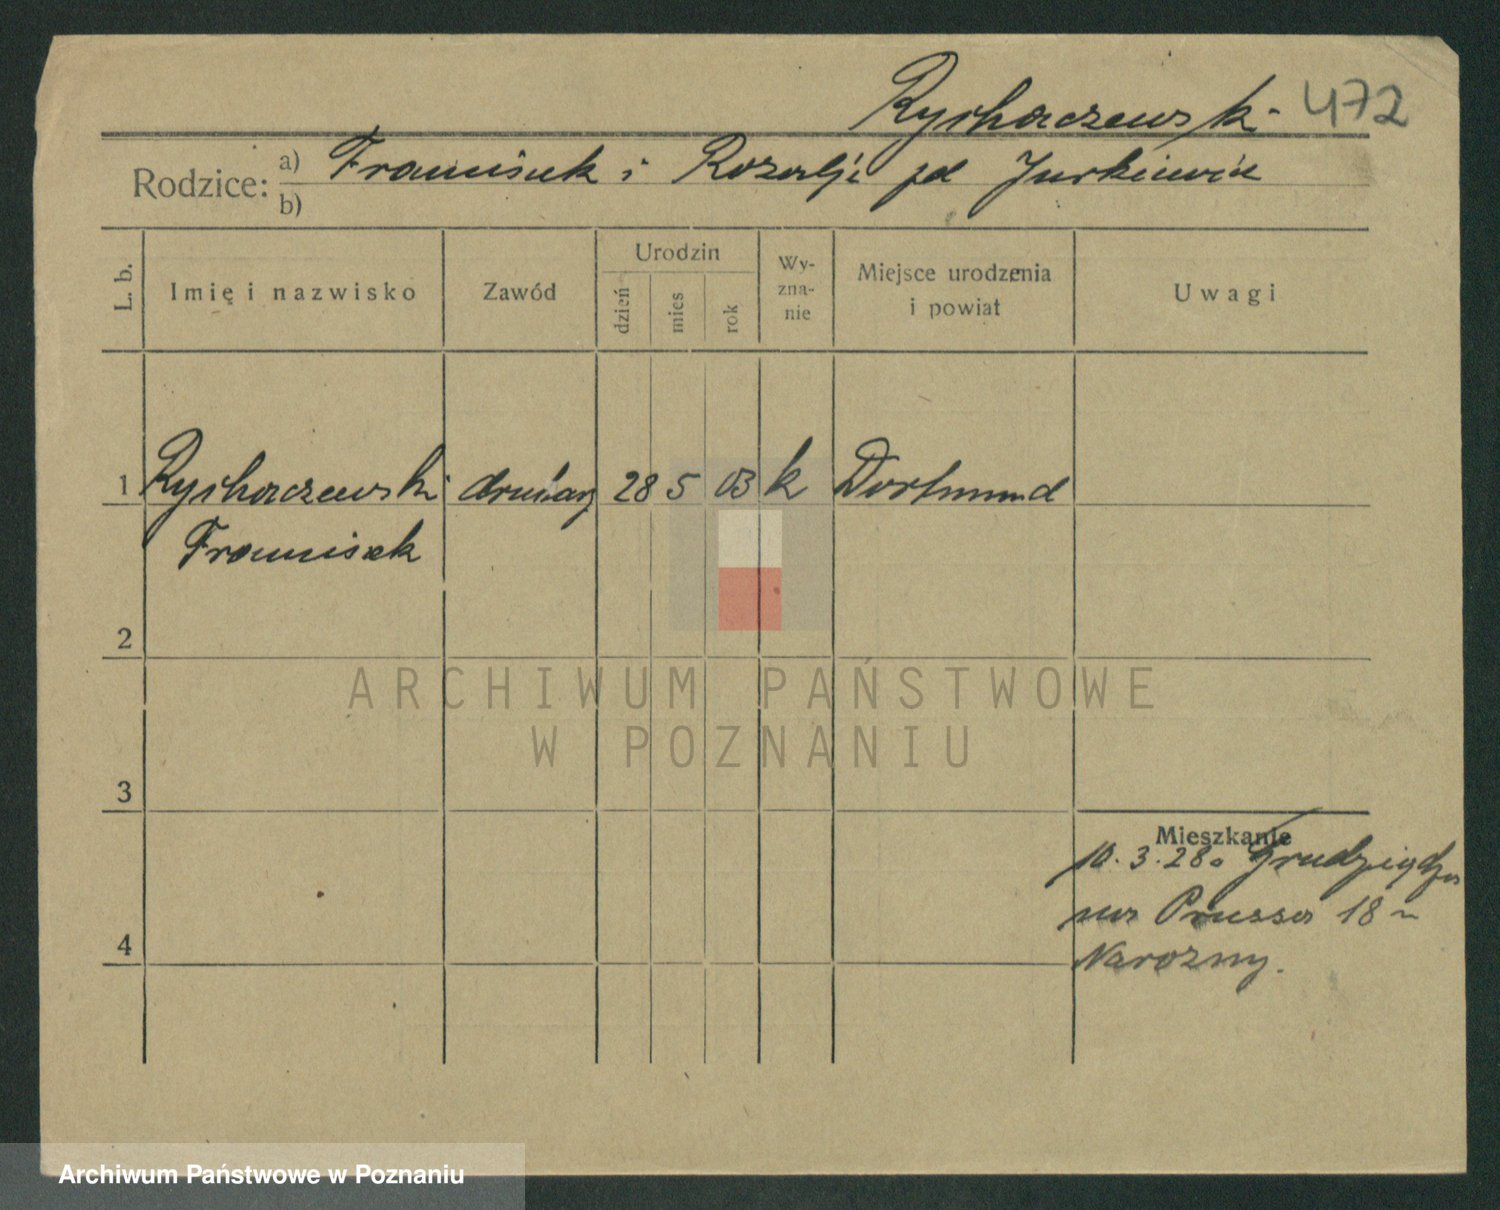 Rychaczewski 472
Rodzice: a) Franciszek i Rozalji zd Jurkiewicz
b)
L. b. Imię i nazwisko Zawód Urodzin dzień mies rok Wy-zna-nie Miejsce urodzenia i powiat Uwagi
1 Rychaczewski drukarz 28 5 03 k Dortmund
Franciszek
2
3
Mieszkanie
10.3.28. Grudziądz
Prussa 18
4
Narozny.
ARCHIWUM PAŃSTWOWE
W POZNANIU
Archiwum Państwowe w Poznaniu